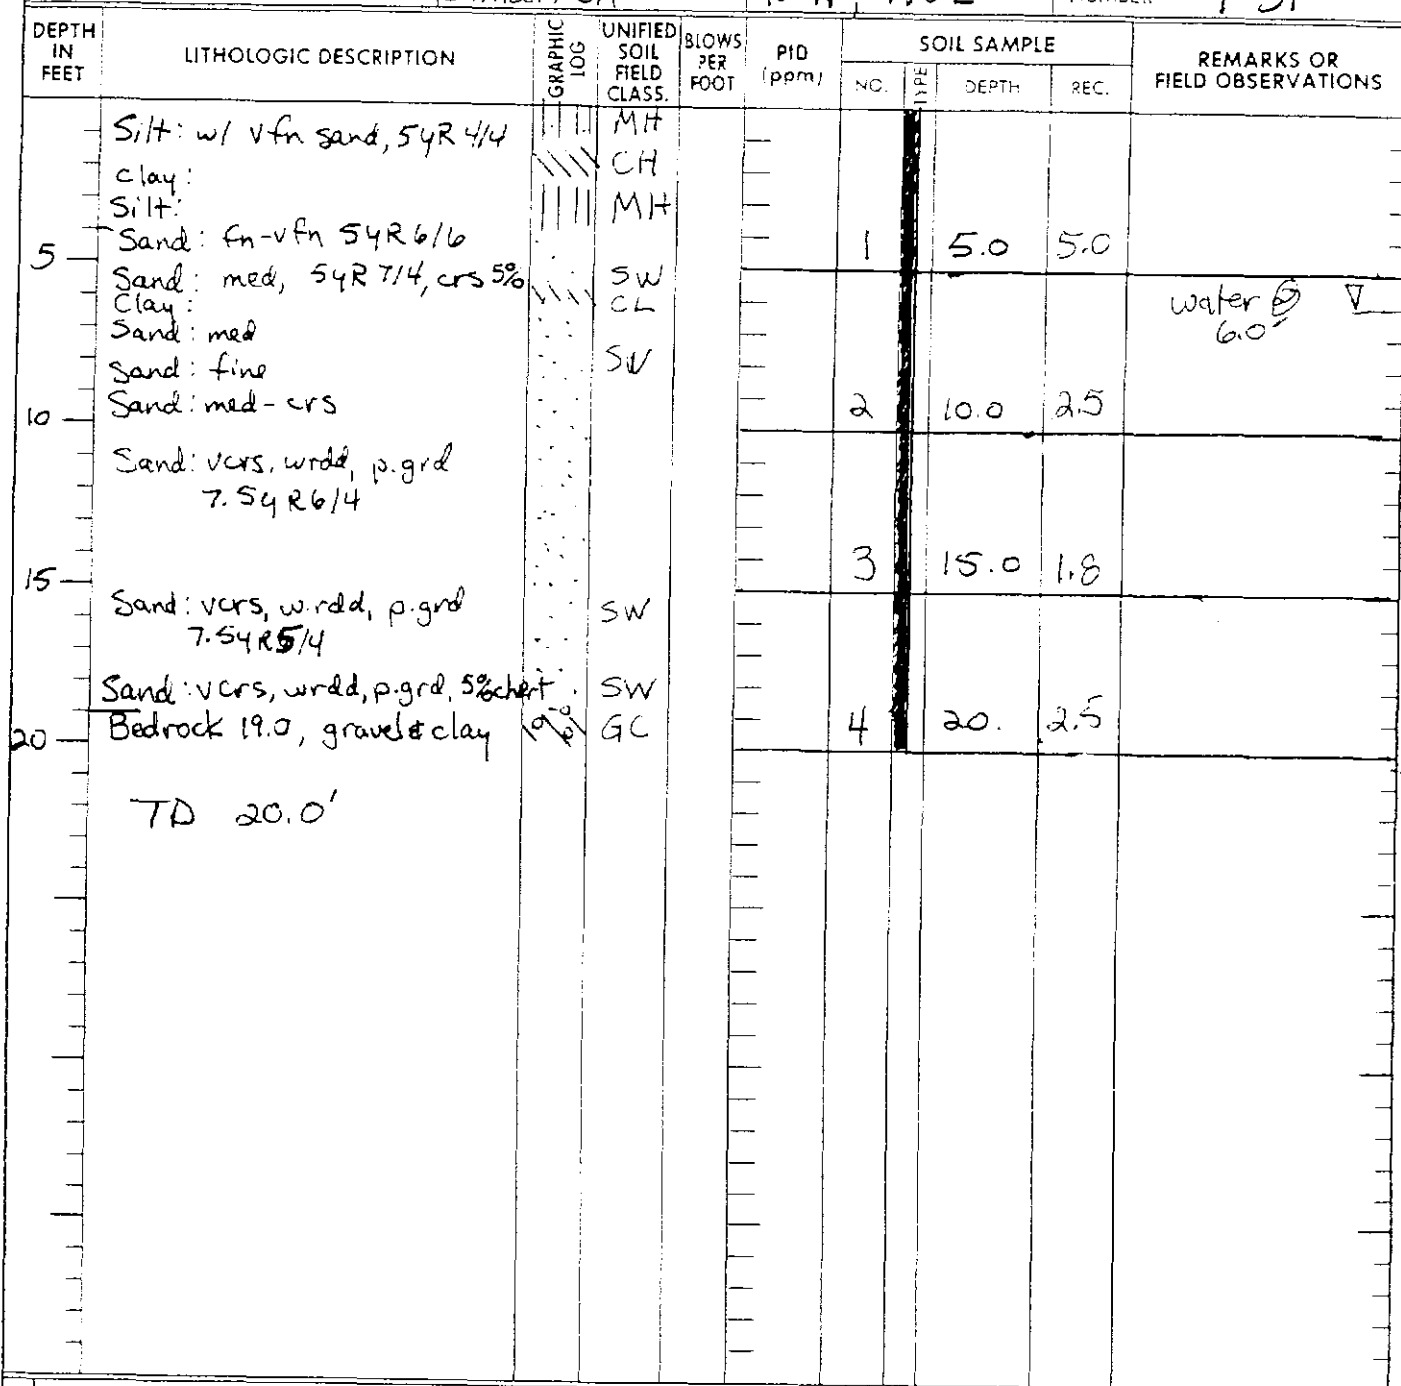 DEPTH IN FEET
LITHOLOGIC DESCRIPTION
GRAPHIC LOG
UNIFIED SOIL FIELD CLASS.
BLOWS PER FOOT
PID (ppm)
SOIL SAMPLE
NO.
TYPE
DEPTH
REC.
REMARKS OR FIELD OBSERVATIONS
Silt: w/ vfn sand, 5YR 4/4 MH
Clay: CH
Silt: MH
Sand: fn-vfn 5YR 6/6
5 1 5.0 5.0
Sand: med, 5YR 7/4, crs 5% SW
Clay: CL water @
6.0'
Sand: med
Sand: fine SW
Sand: med-crs
10 2 10.0 2.5
Sand: vcrs, wrdd, p.grd
7.5YR6/4
15 3 15.0 1.8
Sand: vcrs, w.rdd, p.grd SW
7.5YR5/4
Sand: vcrs, wrdd, p.grd, 5% chert SW
Bedrock 19.0, gravel & clay GC
20 4 20. 2.5
TD 20.0'